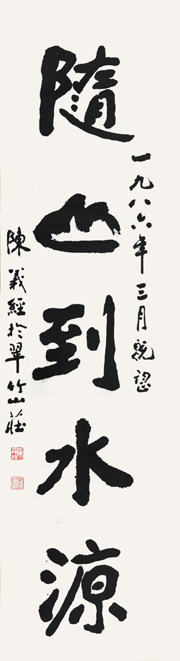 一九八六年三月既望
隨山到水源
陳義經於翠竹山莊